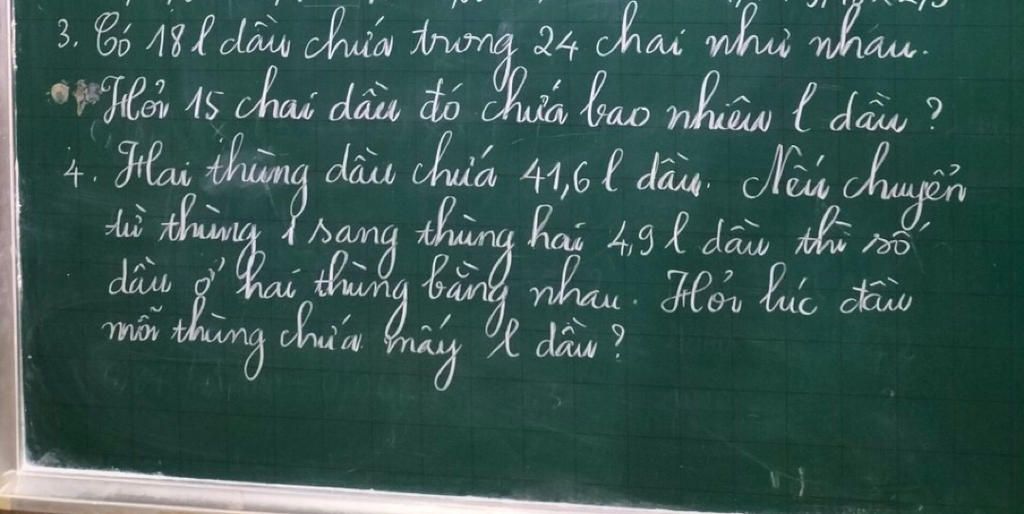 3. Có 18 l dầu chứa trong 24 chai như nhau.
Hỏi 15 chai dầu đó chứa bao nhiêu l dầu?
4. Hai thùng dầu chứa 41,6 l dầu. Nếu chuyển
từ thùng 1 sang thùng hai 4,9 l dầu thì số
dầu ở hai thùng bằng nhau. Hỏi lúc đầu
mỗi thùng chứa mấy l dầu?